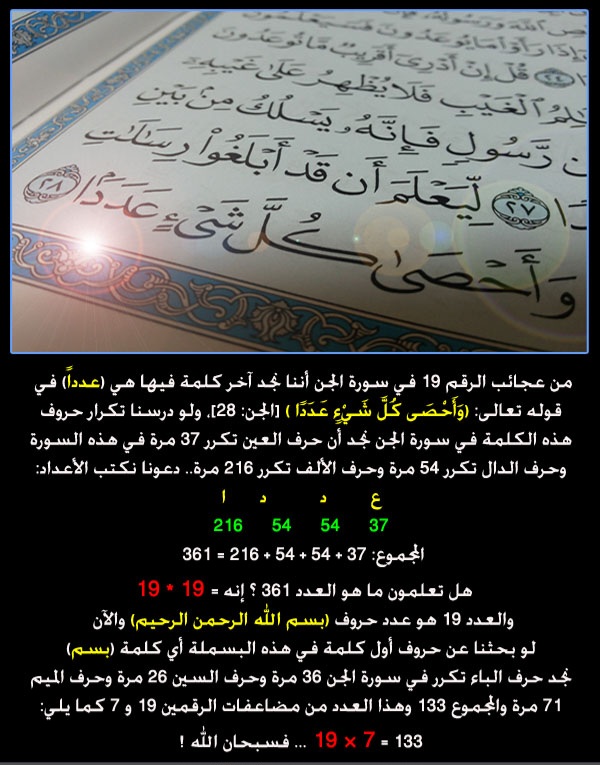 قُلْ إِنْ أَدْرِىٓ أَقَرِيبٌ مَّا تُوعَدُونَ
ٱلْغَيْبِ فَلَا يُظْهِرُ عَلَىٰ غَيْبِهِۦٓ
رَّسُولٍ فَإِنَّهُۥ يَسْلُكُ مِنۢ بَيْنِ
٢٧ لِّيَعْلَمَ أَن قَدْ أَبْلَغُوا۟ رِسَٰلَٰتِ
وَأَحْصَىٰ كُلَّ شَىْءٍ عَدَدًۢا ٢٨
من عجائب الرقم 19 في سورة الجن أننا نجد آخر كلمة فيها هي (عدداً) في
قوله تعالى: (وَأَحْصَى كُلَّ شَيْءٍ عَدَدًا ) [الجن: 28]، ولو درسنا تكرار حروف
هذه الكلمة في سورة الجن نجد أن حرف العين تكرر 37 مرة في هذه السورة
وحرف الدال تكرر 54 مرة وحرف الألف تكرر 216 مرة.. دعونا نكتب الأعداد:
ع د د ا
37 54 54 216
المجموع: 37 + 54 + 54 + 216 = 361
هل تعلمون ما هو العدد 361 ؟ إنه = 19 * 19
والعدد 19 هو عدد حروف (بسم الله الرحمن الرحيم) والآن
لو بحثنا عن حروف أول كلمة في هذه البسملة أي كلمة (بسم)
نجد حرف الباء تكرر في سورة الجن 36 مرة وحرف السين 26 مرة وحرف الميم
71 مرة والمجموع 133 وهذا العدد من مضاعفات الرقمين 19 و 7 كما يلي:
133 = 7 × 19 ... فسبحان الله !